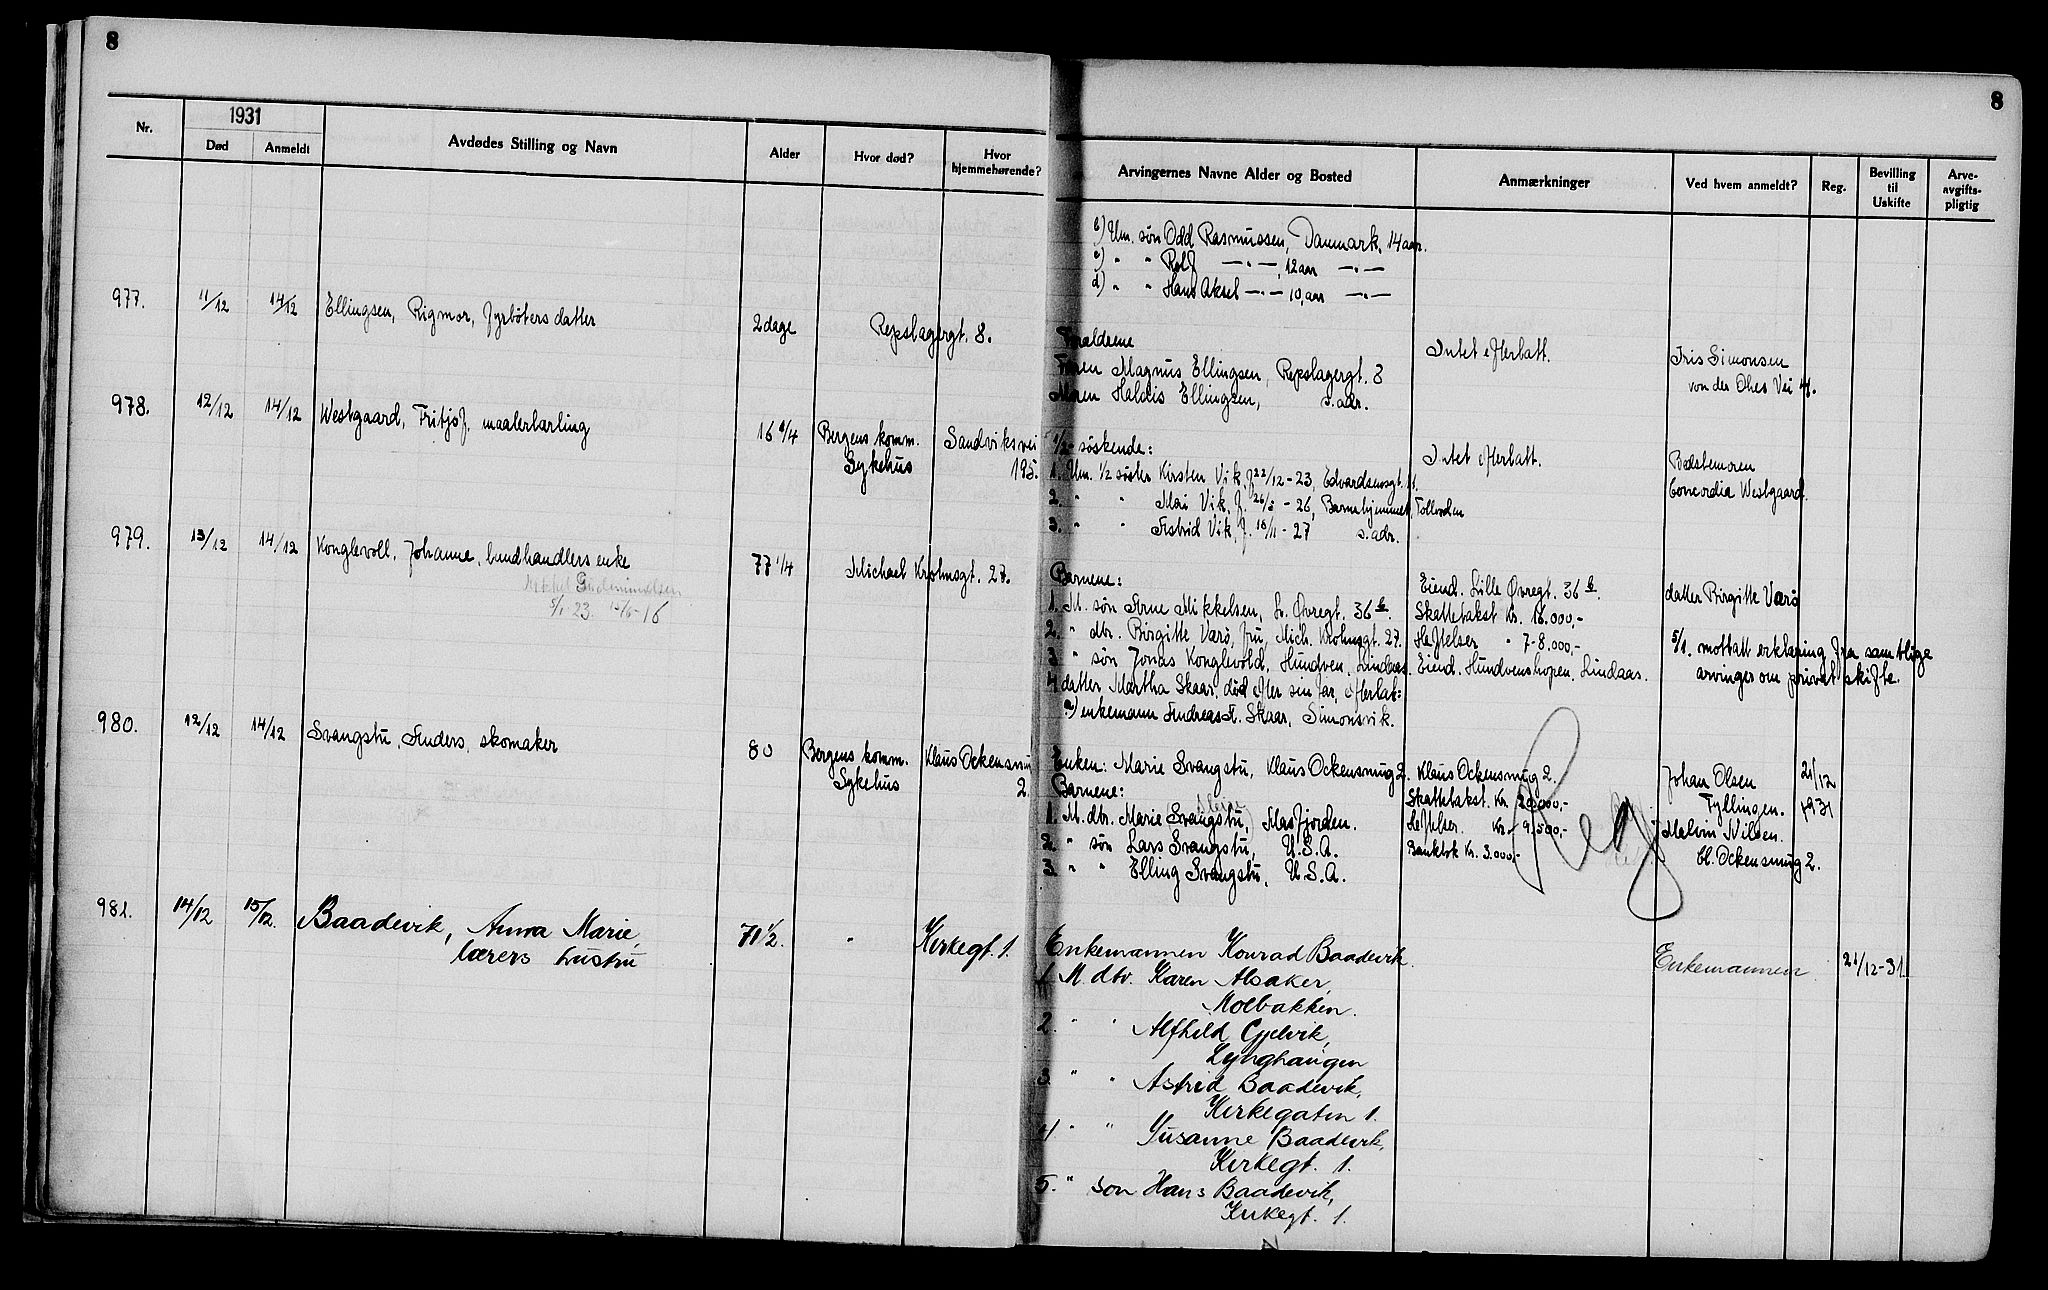 8
8
Nr.
1931
Død
Anmeldt
Avdødes Stilling og Navn
Alder
Hvor død?
Hvor hjemmehørende?
Arvingernes Navne Alder og Bosted
Anmærkninger
Ved hvem anmeldt?
Reg.
Bevilling til Uskifte
Arve-avgifts-pligtig
b) Um. søn Odd Rasmussen, Danmark, 14 aar.
c) " " Rolf —"— , 12 aar —"—
d) " " Hans Aksel —"— 10, aar —"—
977. 11/12 14/12 Ellingsen, Rigmor, fyrbøters datter
2 dage
Repslagergt. 8.
Forældrene
Faren Magnus Ellingsen, Repslagergt. 8
Moren Haldis Ellingsen, s. adr.
Intet efterlatt.
Iris Simonsen
von der Ohes Vei 4.
978. 12/12 14/12 Westgaard, Fritjof, malerlærling
16 1/4
Bergens komm.
Sykehus
Sandviksvei
195.
1/2-søskende:
1. Um. 1/2 søster Kirsten Vik, f. 22/12-23, Edvardsensgt. 11.
2. " " Mai Vik, f. - 26, Barnehjemmet,
3. " " Astrid Vik, f. 18/11-27 s. adr.
Intet efterlatt.
Bedstemoren
Concordia Westgaard.
979. 13/12 14/12 Konglevoll, Johanne, hundhandlers enke
Mikkel
5/1 23. 16
77 1/4
Michael Krohnsgt. 27.
Barnene:
1. M. søn Arne Mikkelsen, L. Øvregt. 36 b.
2. " dtr. Birgitte Værø, fru, Mich. Krohnsgt. 27.
3. " søn Jonas Konglevold, Hundven, Lindaas.
4 datter Martha Skaar, død efter sin far, efterlat:
a) enkemann Andreas A. Skaar, Simonsvik.
Eiend. Lille Øvregt. 36 b.
Skattetakst Kr. 18.000,-
Heftelser " 7-8.000,-
Eiend. Hundvenshopen, Lindaas.
datter Birgitte Værø
5/1. mottatt erklæring fra samtlige
arvinger om privat skifte.
980. 12/12 14/12 Svangstu, Anders, skomaker
80
Bergens komm.
Sykehus
Klaus Ockensmug
2.
Enken: Marie Svangstu, Klaus Ockensmug 2.
Barnene:
1. M. dtr. Marie Svangstu, Masfjorden.
2. " søn Lars Svangstu, U.S.A.
3. " " Elling Svangstu, U.S.A.
Klaus Ockensmug 2.
Skattetakst. Kr. 20.000,-
Heftelser. Kr. 9.500,-
Bankbok Kr. 3.000,-
Reg
Johan Olsen
Fyllingen.
Malvin Nilsen.
Cl. Ockensmug 2.
21/12
1931
981. 14/12 15/12. Baadevik, Anna Marie,
lærers hustru
71 1/2.
"
Kirkegt. 1.
Enkemannen Konrad Baadevik.
1. M. dtr. Karen Alsaker,
Molbakken.
2. " " Alfhild Gjelvik,
Lynghaugen
3. " " Astrid Baadevik,
Kirkegaten 1.
4. " " Susanne Baadevik,
Kirkegt. 1.
5. " søn Hans Baadevik,
Kirkegt. 1.
Enkemannen
21/12-31